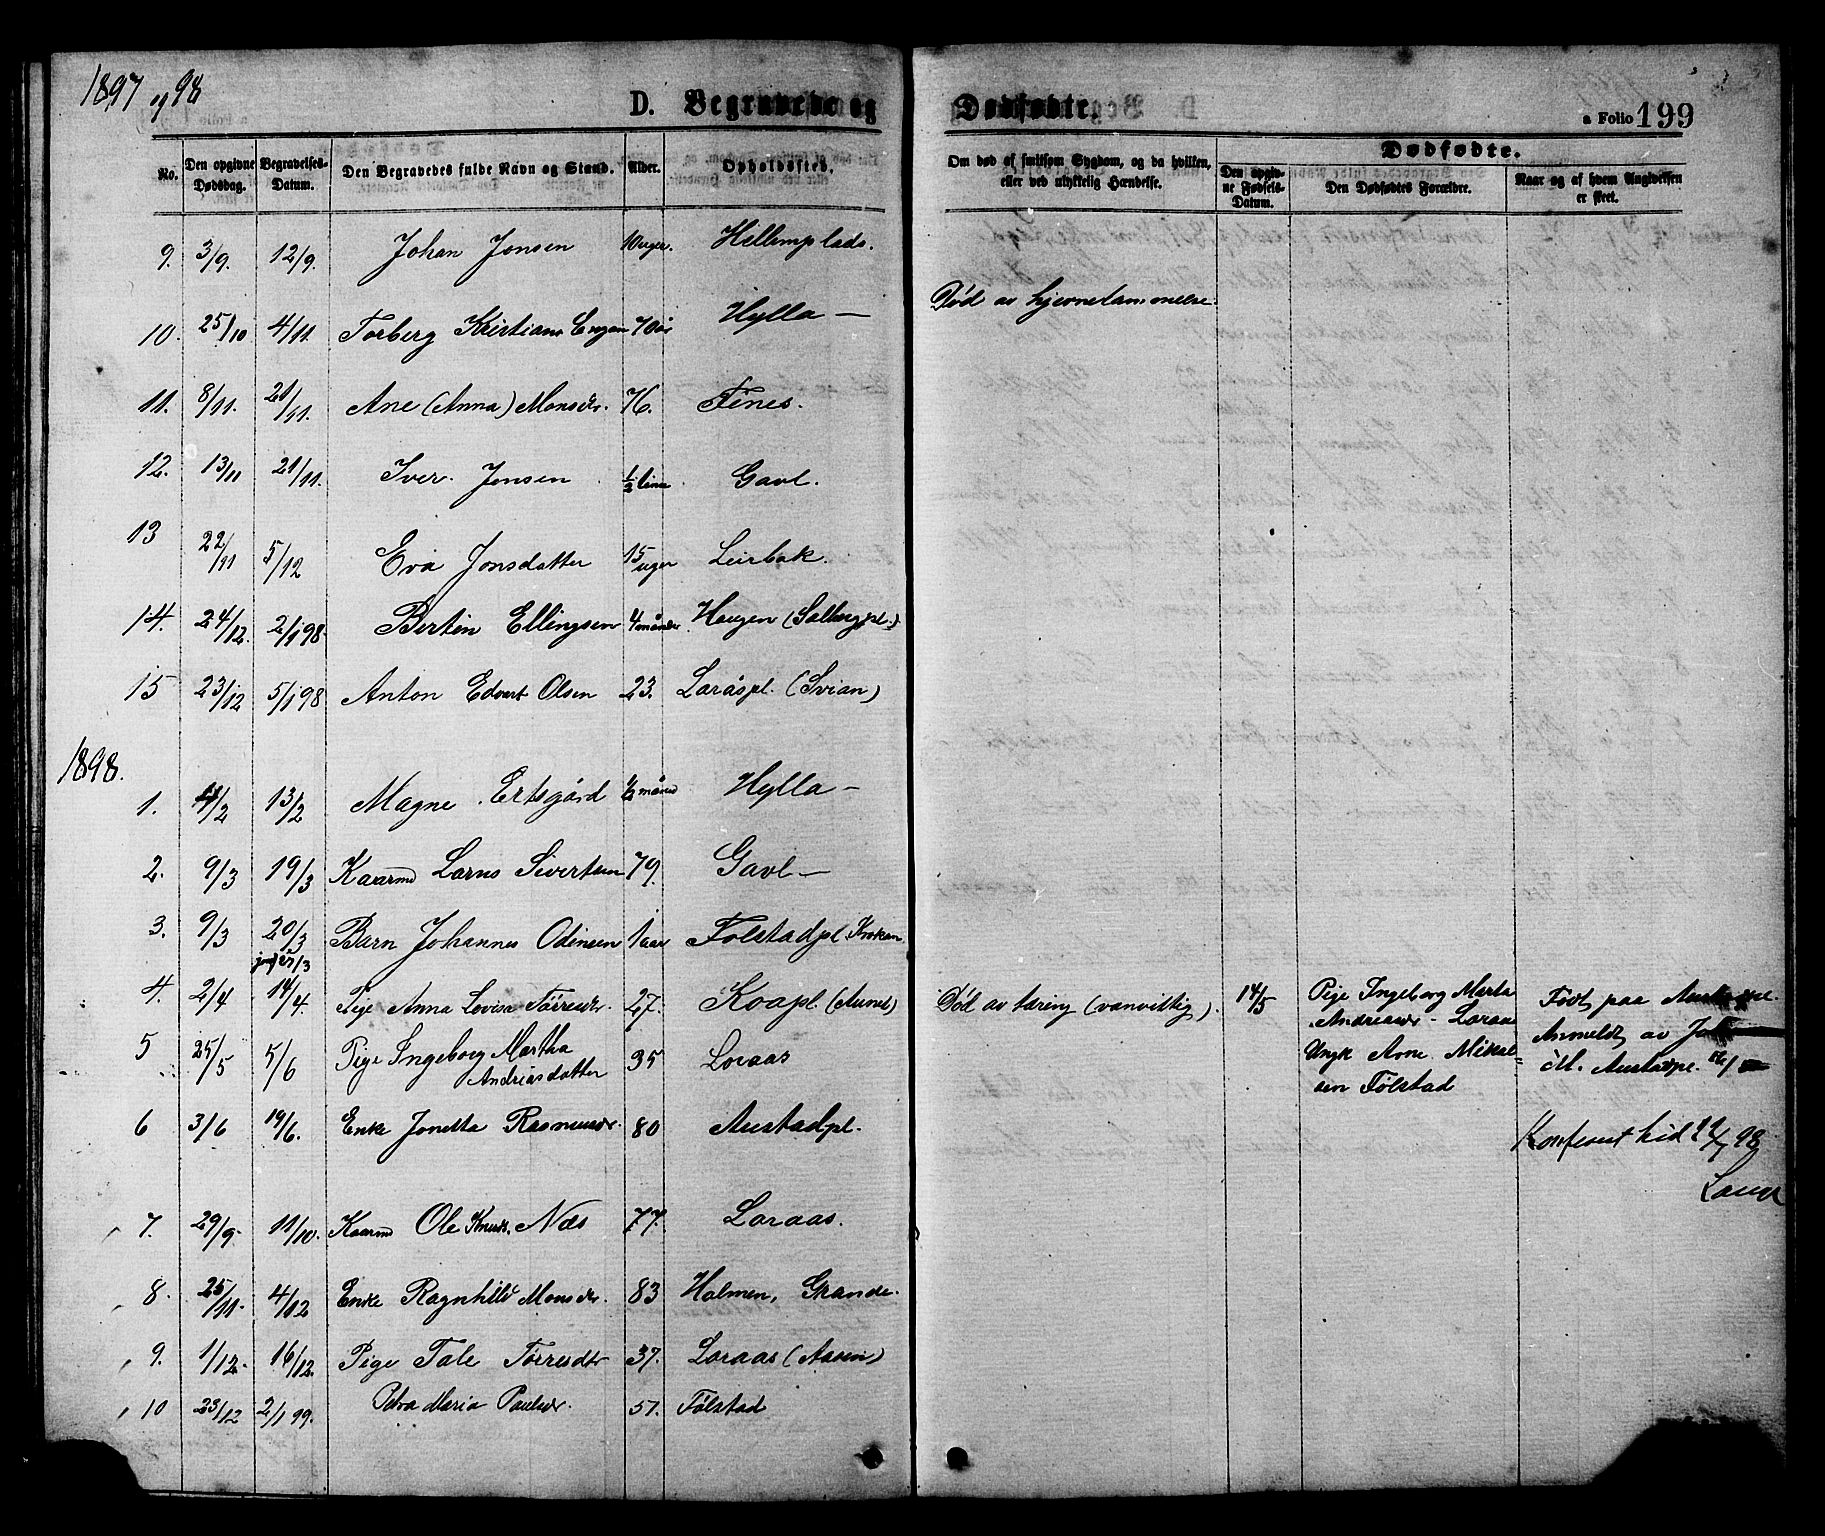 1897 og 98
D. Begravede og Dødfødte.
a Folio 199
No.
Den opgivne Dødsdag.
Begravelses-Datum.
Den Begravedes fulde Navn og Stand.
Alder.
Opholdssted.
Om død af smitsom Sygdom, og da hvilken, eller ved ulykkelig Hændelse.
Dødfødte.
Den opgivne Fødsels-Datum.
Den Dødfødtes Forældre.
Naar og af hvem Angivelsen er skeet.
9. 3/9. 12/9. Johan Jonsen 10 uger. Hellemplads.
10. 25/10 4/11. Torberg Kristians Engen 70 år Hylla — Død av hjernelammelse.
11. 8/11. 21/11. Ane (Anna) Monsdr. 76. Fines.
12. 13/11 21/11. Iver Jonsen 1/2 time Gavl.
13 22/11 5/12 Eva Jonsdatter 15 uger Leirbak.
14. 24/12. 2/1 98. Bertin Ellingsen 4 måneder Haugen (Salbergpl.)
15 23/12 5/1 98 Anton Edvart Olsen 23. Laråspl. (Svian)
1898.
1. 4/2 13/2 Magne Ertsgård 1/2 måned Hylla —
2. 9/3 19/3 Kaarmd Larns Sivertsen 79. Gavl —
3. 9/3 20/3 Barn Johannes Odinsen 1 aar Følstadpl. Krokan
jord 27/3
4. 2/4 14/4. Pige Anna Lovisa Tørresdr 27. Koapl. (Aunet) Død av tæring (vanvittig). 14/5 Pige Ingeborg Marta Født paa
Andreasdr - Loraas Anmeldt av
5 25/5 5/6 Pige Ingeborg Martha 35 Loraas
Andreasdatter
Ungk Arne Mikal=
M. Austadpl.
sen Følstad
6 3/6 19/6. Enke Jonetta Rasmusdr. 80 Austadpl.
Konferert hid 98
7. 29/9. 11/10. Kaarmd Ole Knuds. Næs 77. Loraas.
8. 25/11. 4/12 Enke Ragnhild Monsdr. 83 Halmen, Grande.
9. 1/12. 16/12. Pige Tale Tørresdtr 37. Loraas (Aasen)
10 23/12 2/1 99. Petra Maria Paulsdr. 57. Følstad